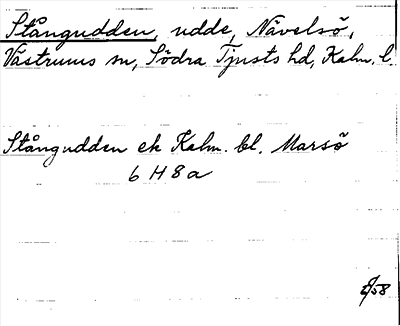 Stångudden, udde, Nävelsö,
Västrums sn, Södra Tjusts hd, Kalm. l.
Stångudden ek Kalm. bl. Marsö
6 H 8 a
/58